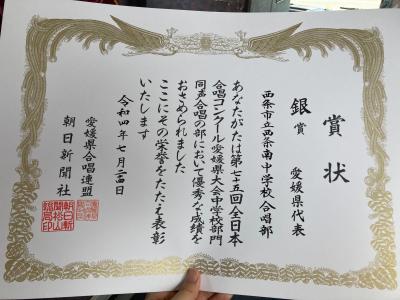 賞状
銀賞 愛媛県代表
西条市立西条南中学校合唱部
あなたがたは第七十五回全日本
合唱コンクール愛媛県大会中学校部門
同声合唱の部において優秀な成績を
おさめられました
ここにその栄誉をたたえ表彰
いたします
令和四年七月二十四日
愛媛県合唱連盟
朝日新聞社